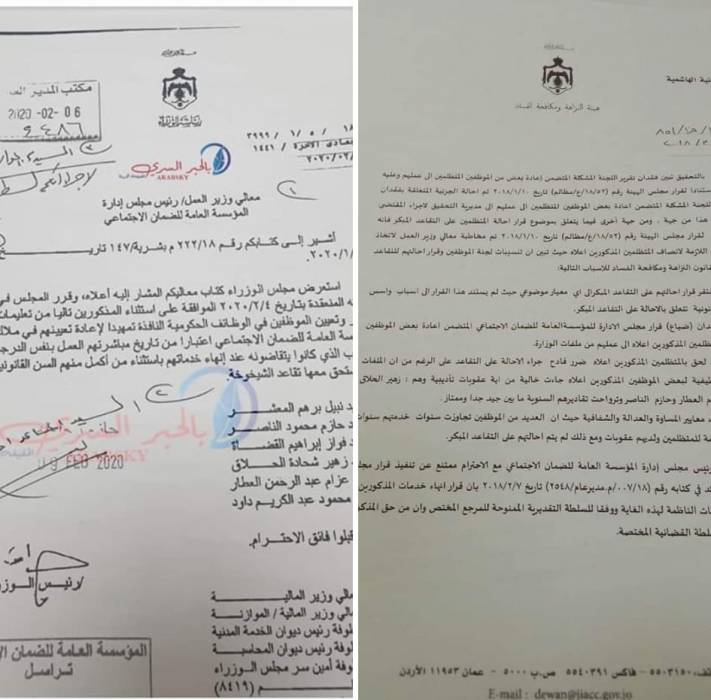 مكتب المدير العـ
2020 -02- 06
٩٤٨٦
٣٩٩٩/ ١ / ٥ / ١٨
١٤٤١
بالخبر السري
ARABSKY
معالي وزير العمل/ رئيس مجلس إدارة
المؤسسة العامة للضمان الاجتماعي
أشير إلى كتابكم رقم ٢٢٢/١٨ م بشرية/١٤٧ تاريـخ
استعرض مجلس الوزراء كتاب معاليكم المشار إليه أعلاه، وقرر المجلس في
المنعقدة بتاريخ ٢٠٢٠/٢/٤ الموافقة على استثناء المذكورين تاليا من تعليمات
وتعيين الموظفين في الوظائف الحكومية النافذة تمهيدا لإعادة تعيينهم في ملاك
العامة للضمان الاجتماعي اعتبارا من تاريخ مباشرتهم العمل بنفس الدرجـ
الذي كانوا يتقاضونه عند إنهاء خدماتهم باستثناء من أكمل منهم السن القانونيـ
معها تقاعد الشيخوخة.
نبيل برهم المعشـر
حازم محمود الناصـر
فواز إبراهيم القضـاة
زهير شحادة الحـلاق
عزام عبد الرحمن العطار
محمود عبد الكريم داود
بالخبر السري
ARABSKY
FEB 2020
فائق الاحترام،
رئيس الـوزر
وزير الماليـة
وزير المالية / الموازنـة
رئيس ديوان الخدمة المدنية
رئيس ديوان المحاسبـة
أمين سر مجلس الـوزراء
(٨٤١٩)
المؤسسة العامة للضمان الا
تراسل
الهاشمية
هيئة النزاهة ومكافحة الفساد
بالتحقيق تبين فقدان تقرير اللجنة المشكلة المتضمن إعادة بعض من الموظفين المتظلمين الى عملهم وعليه
استنادا لقرار مجلس الهيئة رقم (١٨/٥٢/ع/مظالم) تاريخ ٢٠١٨/١/١٠ تم احالة الجزئية المتعلقة بفقدان
اللجنة المشكلة المتضمن اعادة بعض الموظفين المتظلمين الى عملهم الى مديرية التحقيق لاجراء المقتضى
هذا من جهة . ومن جهة أخرى فيما يتعلق بموضوع قرار احالة المتظلمين على التقاعد المبكر فانه
لقرار مجلس الهيئة رقم (١٨/٥٢/ع/مظالم) تاريخ ٢٠١٨/١/١٠ تم مخاطبة معالي وزير العمل لاتخاذ
اللازمة لانصاف المتظلمين المذكورين اعلاه حيث تبين ان تنسيبات لجنة الموظفين وقرار احالتهم للتقاعد
قانون النزاهة ومكافحة الفساد للاسباب التالية:
قرار احالتهم على التقاعد المبكر الى أي معيار موضوعي حيث لم يستند هذا القرار الى اسباب واسس
تتعلق بالاحالة على التقاعد المبكر.
(ضياع) قرار مجلس الادارة للمؤسسة العامة للضمان الاجتماعي المتضمن اعادة بعض الموظفين
المتظلمين المذكورين اعلاه الى عملهم من ملفات الوزارة.
لحق بالمتظلمين المذكورين اعلاه ضرر فادح جراء الاحالة على التقاعد على الرغم من ان الملفات
الوظيفية لبعض الموظفين المذكورين اعلاه جاءت خالية من اية عقوبات تأديبية وهم : زهير الحلاق
العطار وحازم الناصر وتراوحت تقاديرهم السنوية ما بين جيد جدا وممتاز.
معايير المساواة والعدالة والشفافية حيث ان العديد من الموظفين تجاوزت سنوات خدمتهم سنوات
للمتظلمين ولديهم عقوبات ومع ذلك لم يتم احالتهم على التقاعد المبكر.
رئيس مجلس إدارة المؤسسة العامة للضمان الاجتماعي مع الاحترام ممتنع عن تنفيذ قرار مجلـ
في كتابه رقم (٠٠٧/١٨/م.مديرعام/٢٥٤٨) تاريخ ٢٠١٨/٢/٧ بان قرار انهاء خدمات المذكورين
الناظمة لهذه الغاية ووفقا للسلطة التقديرية الممنوحة للمرجع المختص وان من حق المذكـ
السلطة القضائية المختصة.
٥٥٠٣١٥٠ - فاكس ٥٥٤٠٣٩١ ص.ب ٥٠٠٠ - عمان ١١٩٥٣ الأردن
E-mail : dewan@jiacc.gov.jo